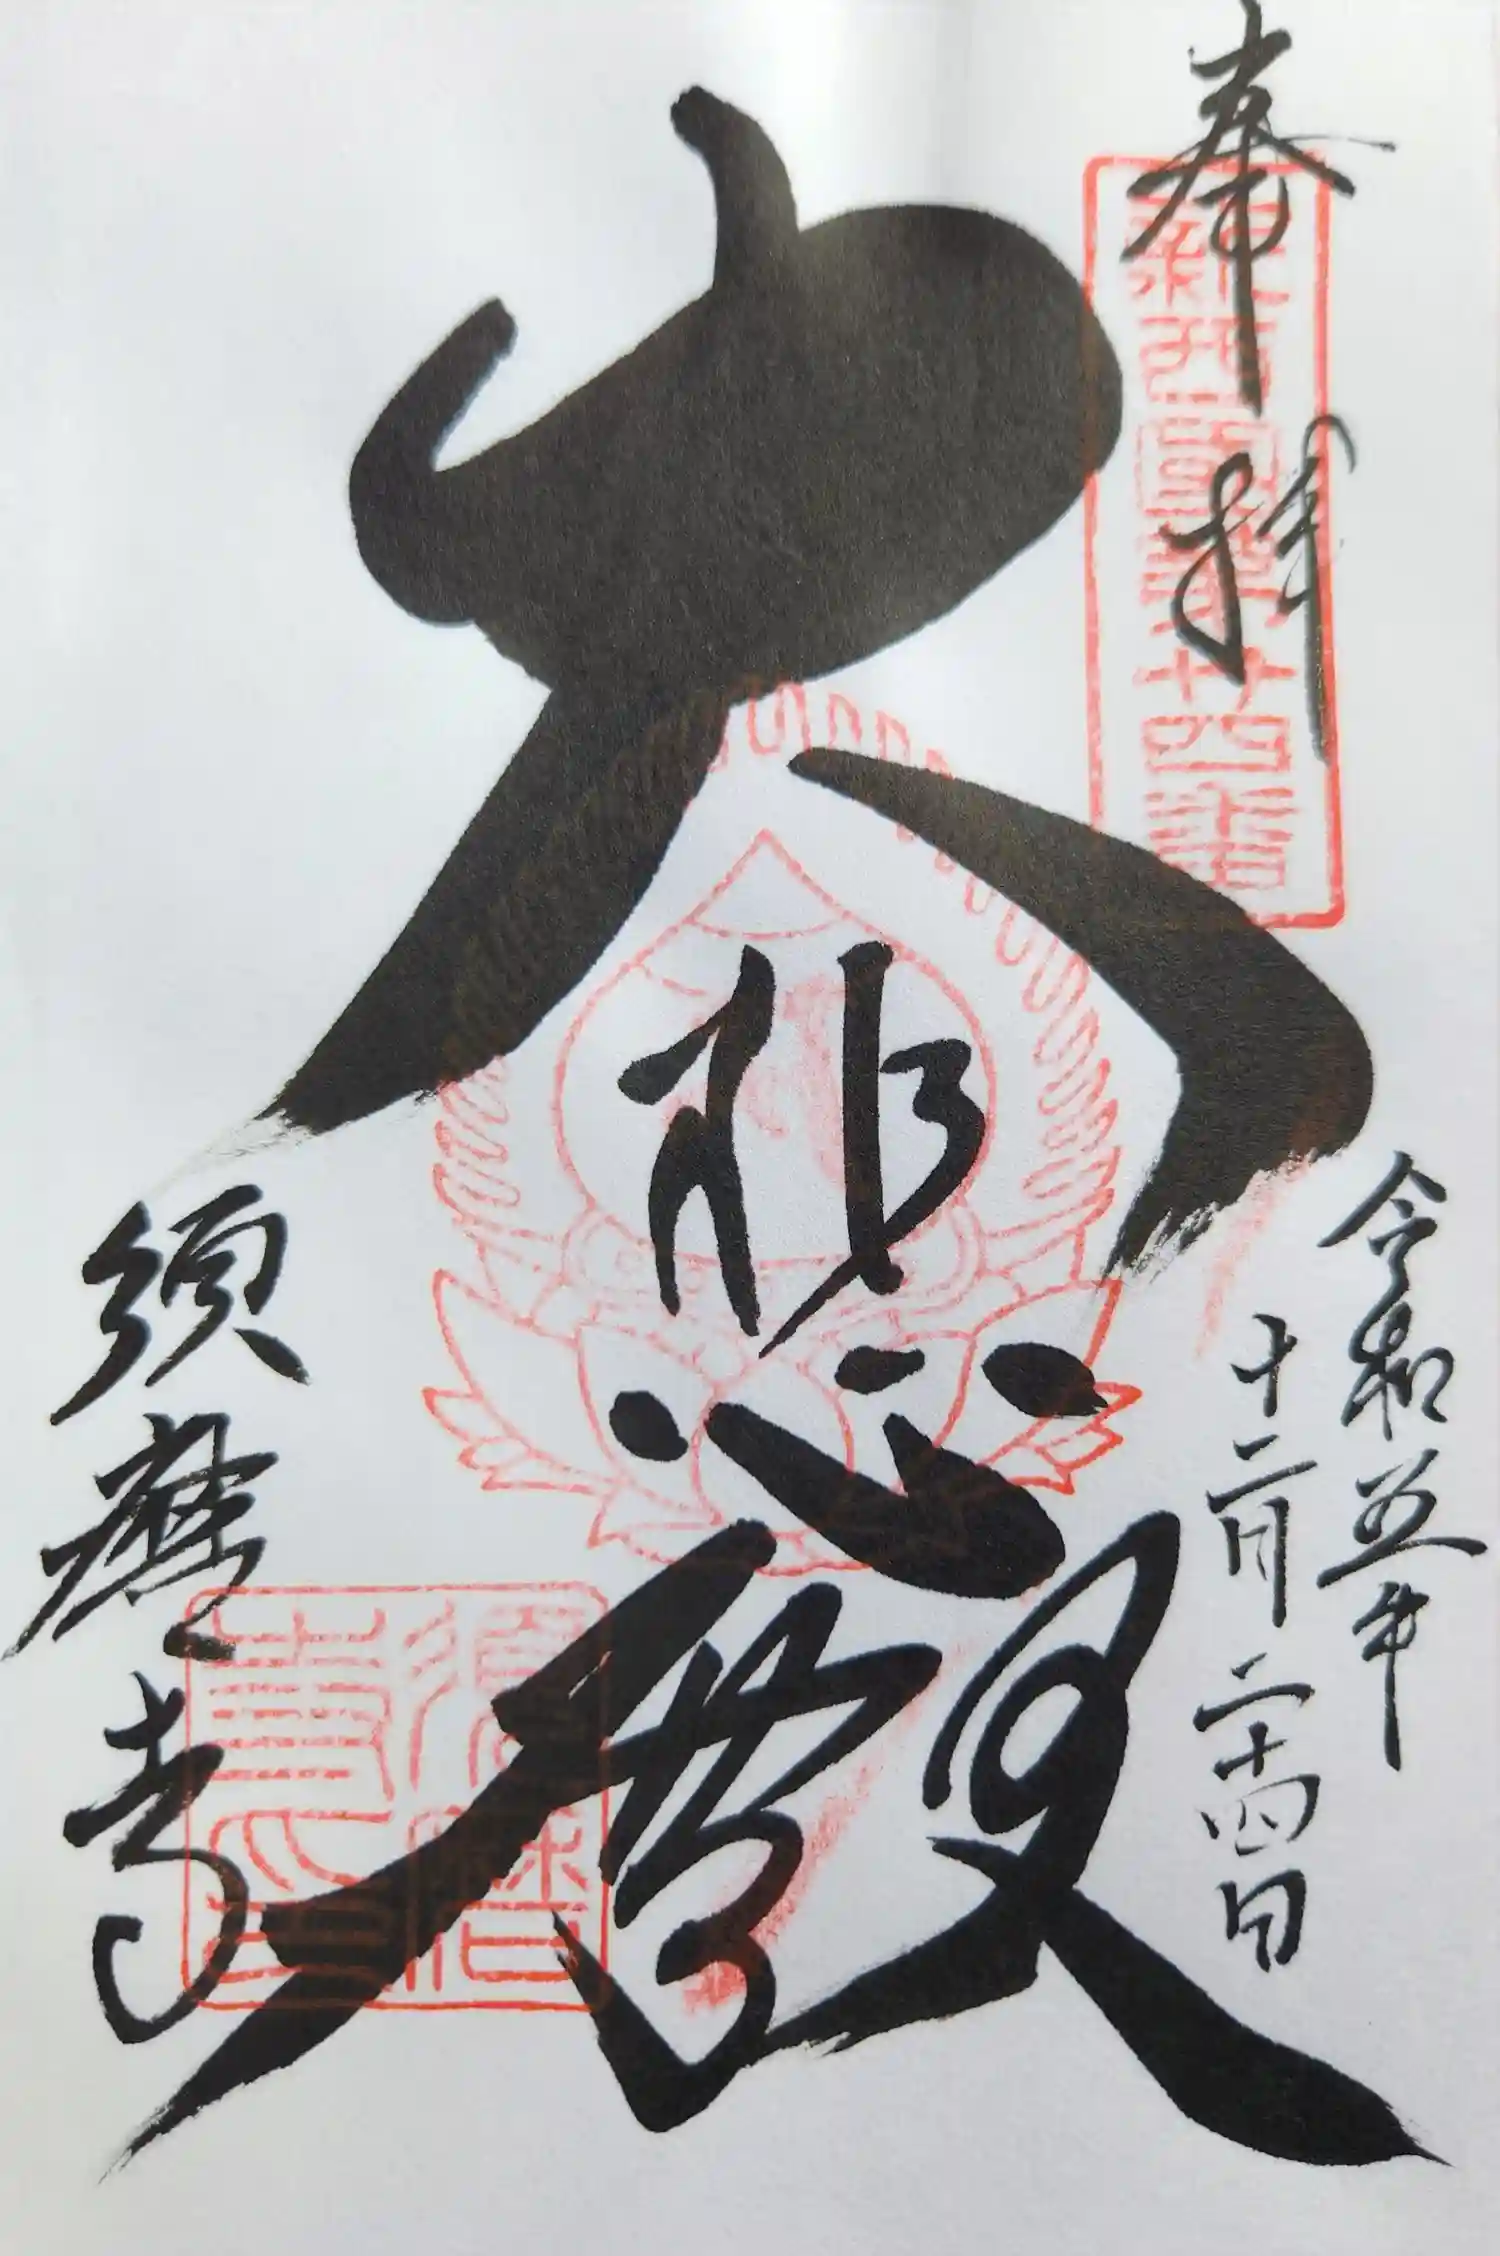 奉拝
新西国第廿四番
令和五年
十二月二十四日
大悲殿
須磨寺
須磨寺印